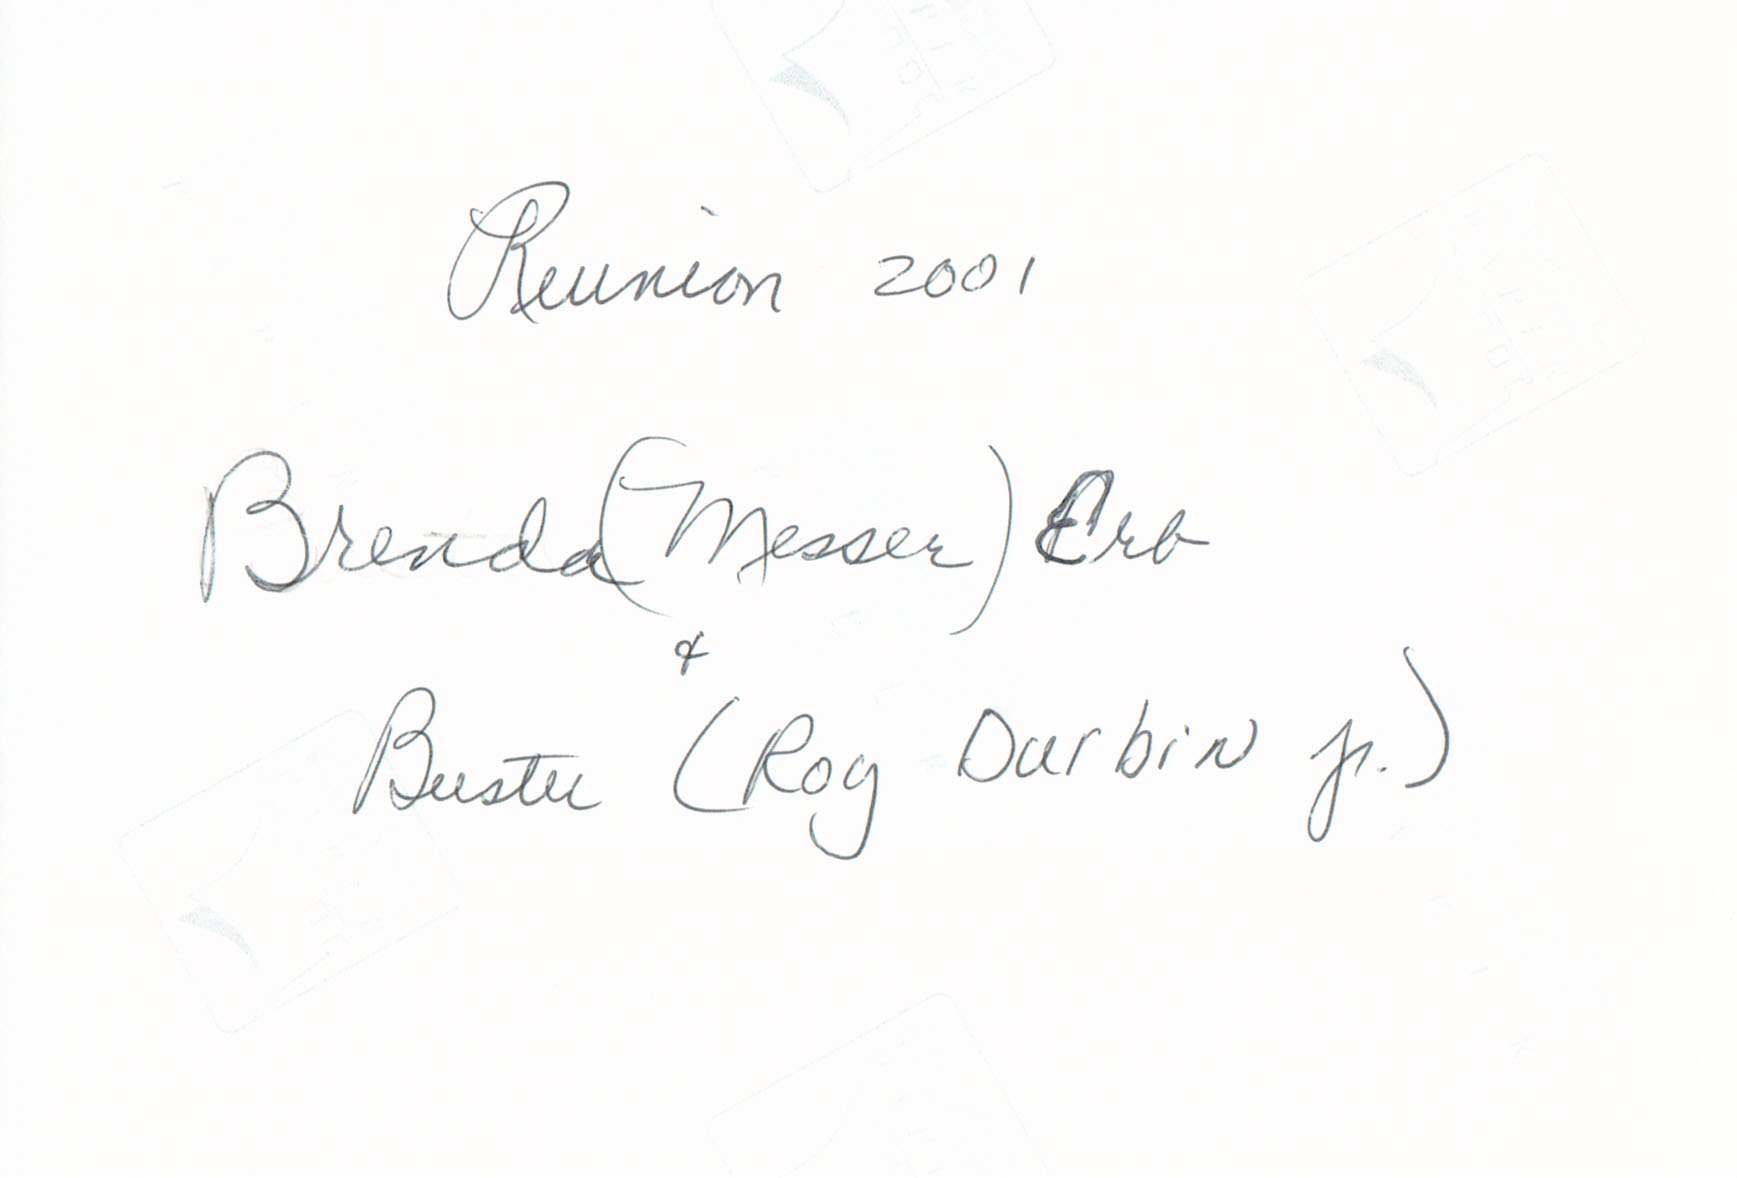 Reunion 2001
Brenda (Messer) Erb
&
Buster (Roy Durbin Jr.)